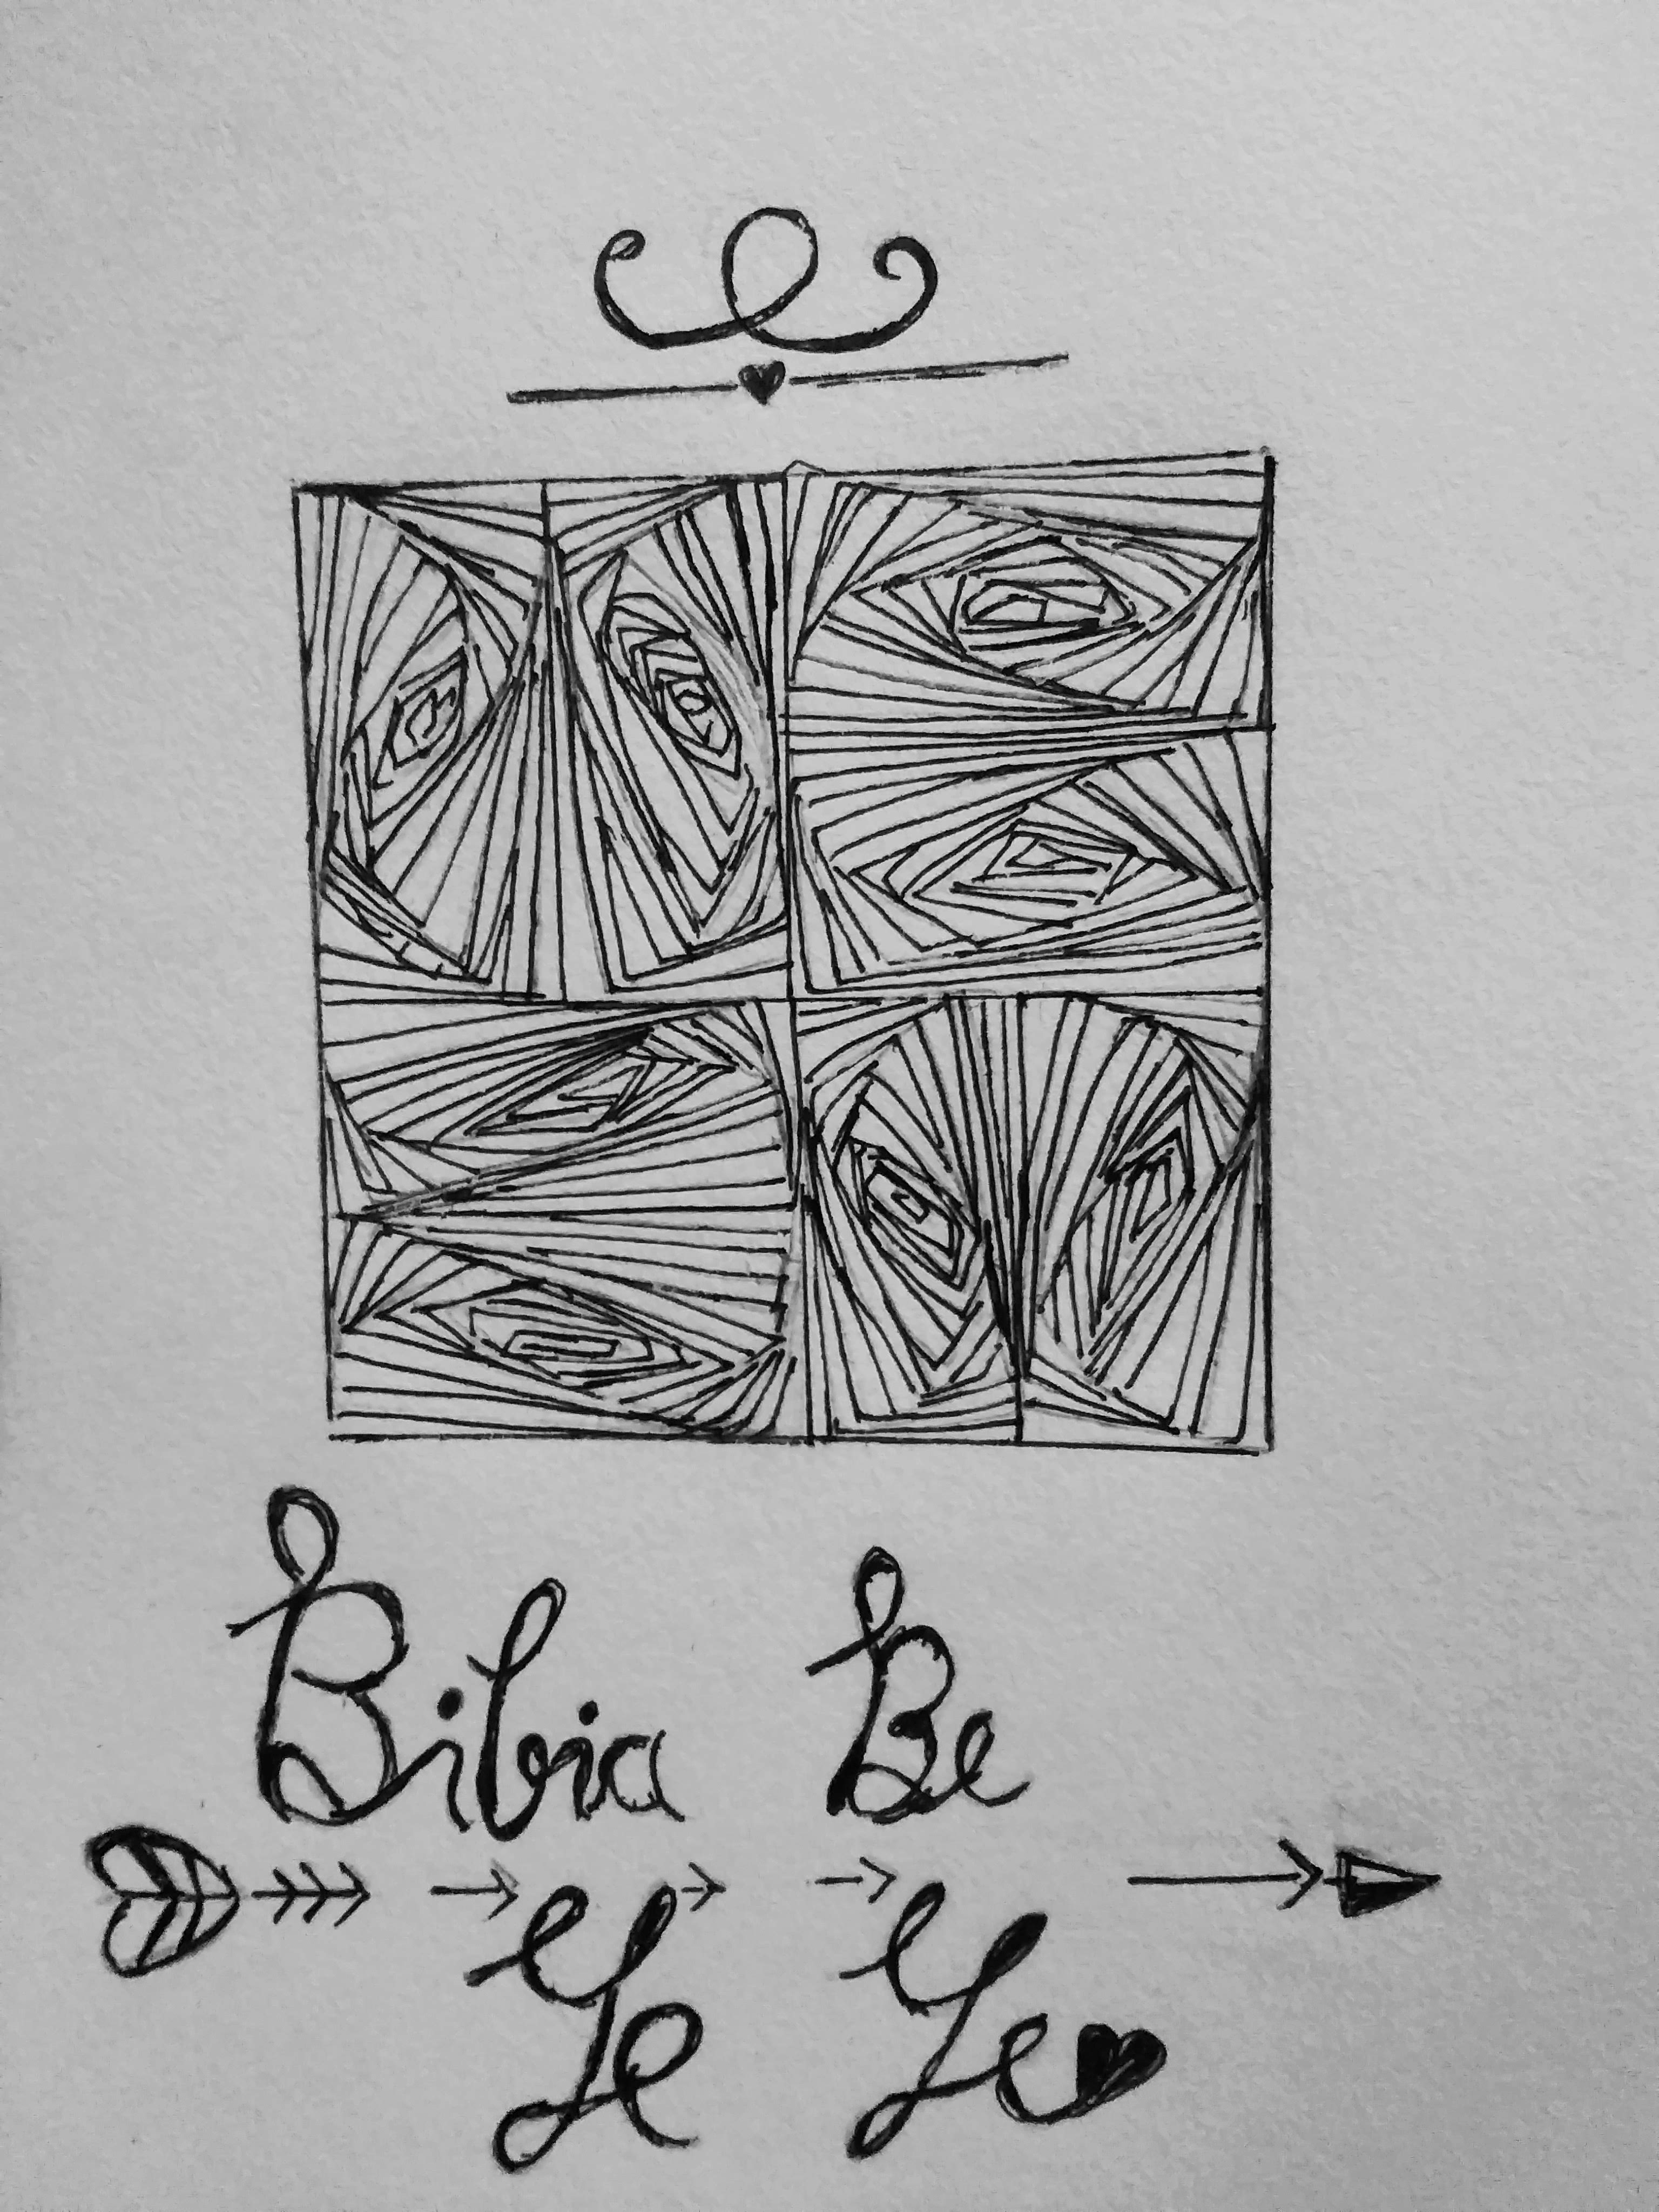 Bibia Be
Ye Ye